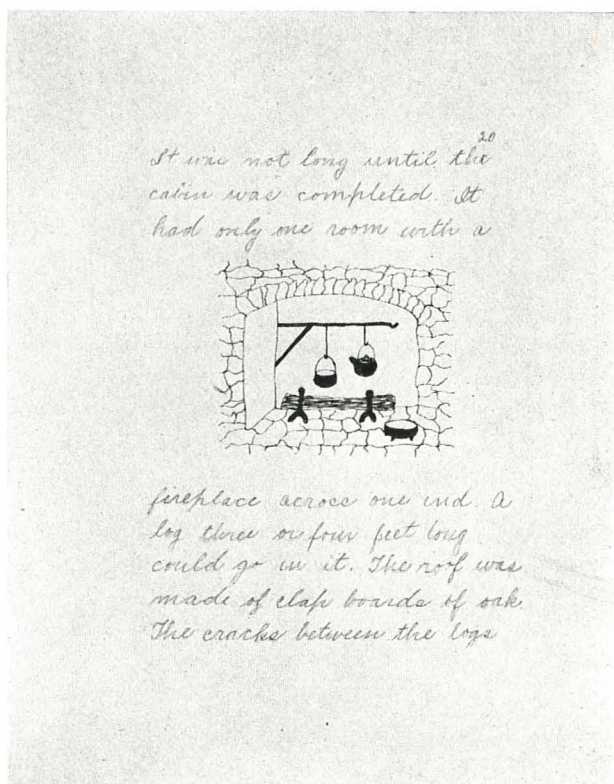 20
It was not long until the
cabin was completed. It
had only one room with a
fireplace across one end. A
log three or four feet long
could go in it. The roof was
made of clap boards of oak.
The cracks between the logs